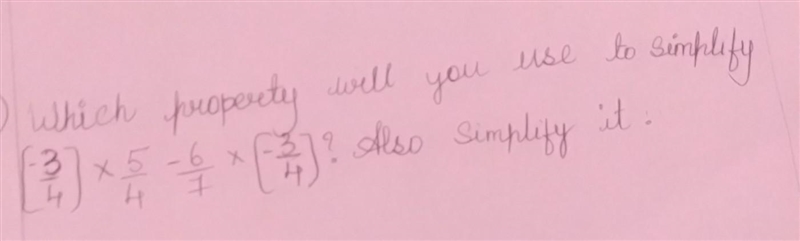 ) Which property will you use to simplify
[-3/4] × 5/4 - 6/7 × [-3/4]? Also simplify it.